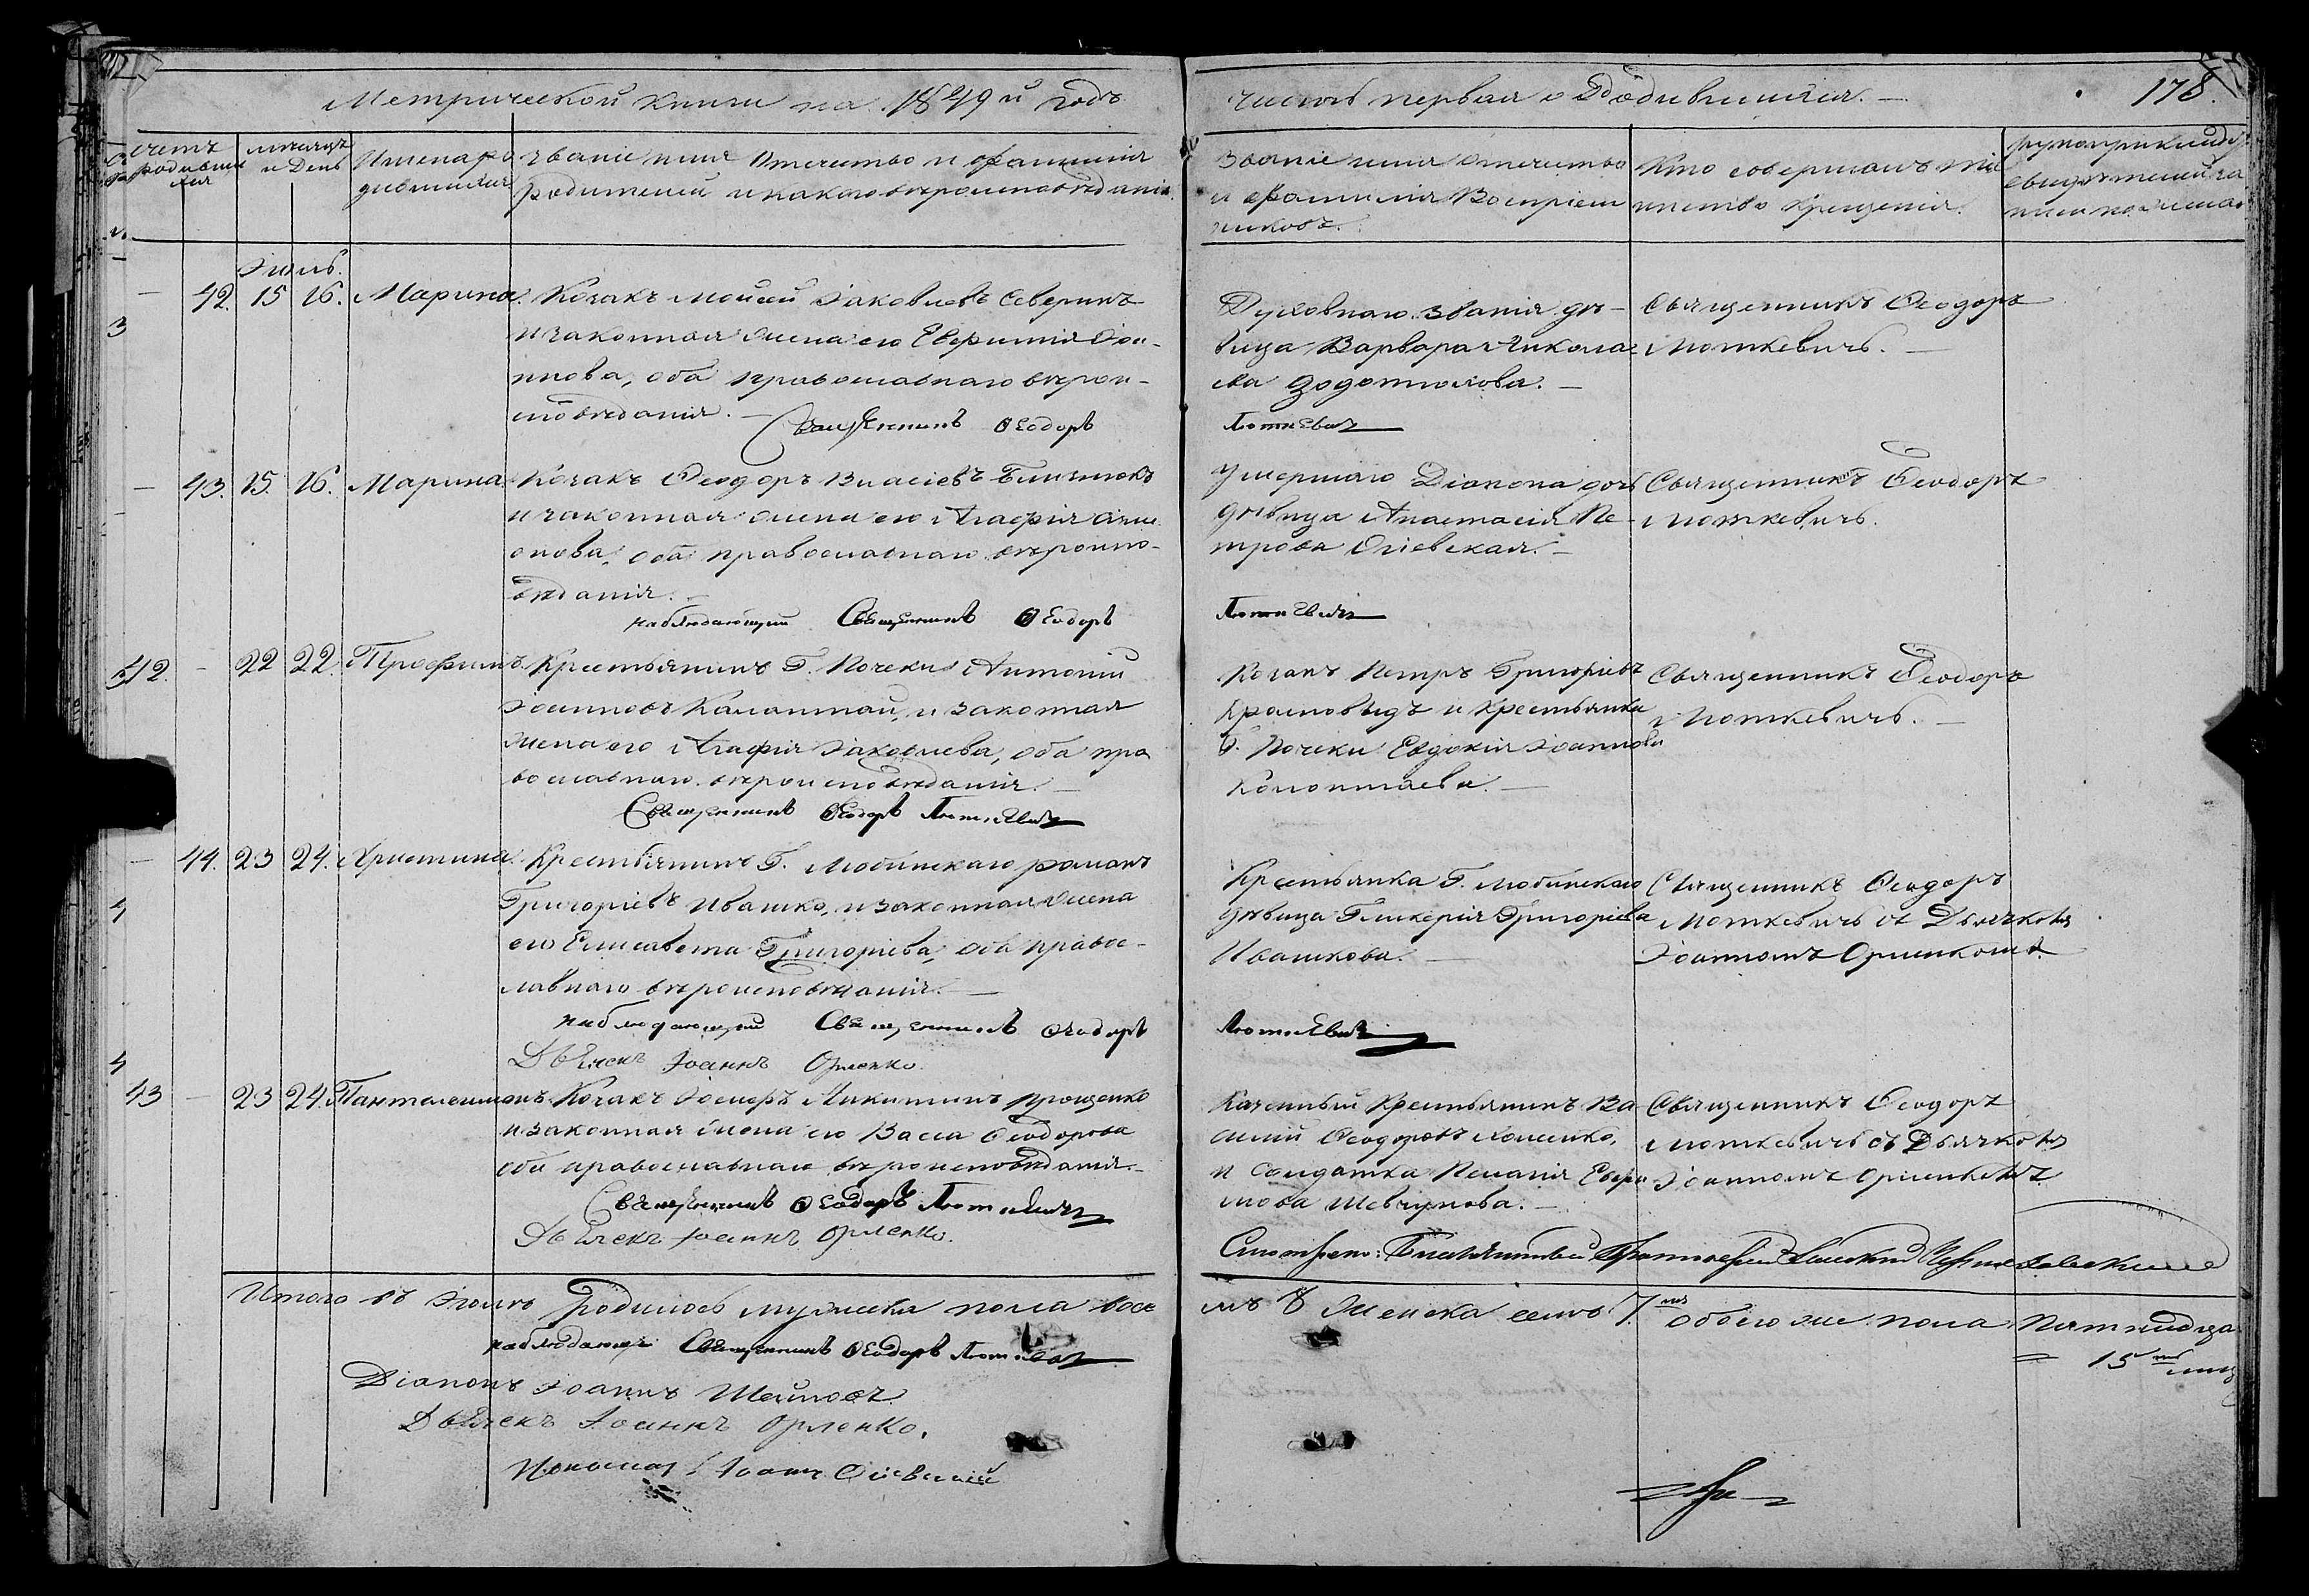 Метрической книги на 1849й годъ
часть первая о Родившихся.
178.
счетъ родившихся
мѣсяцъ и День
Имена родившихся
званіе имя отчество и фамилія
родителей и какого вѣроисповѣданія.
Званіе имя отчество
и фамилія Воспріем
никовъ.
Кто совершалъ таи
инство крещенія.
рукоприкладс.
свидѣтелей за
писи по желан
Іюль.
42. 15 16. Марина. Козакъ Моисей Іаковлевъ Северинъ
и законная жена его Евфимія Іоа-
ннова, оба православнаго вѣрои-
сповѣданія. —
Священникъ Ѳеодоръ
Духовнаго званія дѣ-
вица Варвара Никола
ева
Священникъ Ѳеодоръ
43. 15. 16. Марина. Козакъ Ѳеодоръ Власіевъ
и законная жена его Агафія Сим
онова, оба православнаго вѣроиспо-
вѣданія.
наблюдающій Священникъ Ѳеодоръ
умершаго Діакона дочь
дѣвица Анастасія Пе-
трова Огіевская. —
Священникъ Ѳеодоръ
42. — 22 22. Трофимъ. Крестьянинъ Г. Почеки Антоній
Іоанновъ Калантай, и законная
жена его Агафія Іаковлева, оба пра
вославнаго вѣроисповѣданія. —
Священникъ Ѳеодоръ
Козакъ Петръ Григоріевъ
Красновидъ и Крестьянка
Г. Почеки Евдокія Іоаннова
Колонтаева. —
Священникъ Ѳеодоръ
— 44. 23 24. Христина. Крестьянинъ Г. Любинскаго Романъ
Григоріевъ Ивашко, и законная жена
его Елисавета Григоріева, оба правос-
лавнаго вѣроисповѣданія. —
наблюдающій Священникъ Ѳеодоръ
Дьячекъ Іоаннъ Орленко.
Крестьянка Г. Любинскаго
дѣвица Гликерія Григоріева
Ивашкова. —
Священникъ Ѳеодоръ
съ Дьячкомъ
Іоанномъ Орленкомъ.
43 — 23 24. Пантелеимонъ. Козакъ Іосифъ Никитинъ Прощенко
и законная жена его Васса Ѳеодорова
оба православнаго вѣроисповѣданія. —
Священникъ Ѳеодоръ
Дьячекъ Іоаннъ Орленко.
Казенный Крестьянинъ Ва-
силій Ѳеодоровъ Хоменко,
и Солдатка Пелагія Евфи
мова Шевчукова. —
Священникъ Ѳеодоръ
съ Дьячкомъ
Іоанномъ Орленкомъ.
Смотрелъ: Благочинный
Итого въ Іюлѣ родилось мужеска пола восе
мъ 8 женска семь 7. обоего же пола Пятнадца
15
наблюдающій Священникъ Ѳеодоръ
Діаконъ Іоаннъ
Дьячекъ Іоаннъ Орленко.
Пономарь Іоаннъ Огіевскій